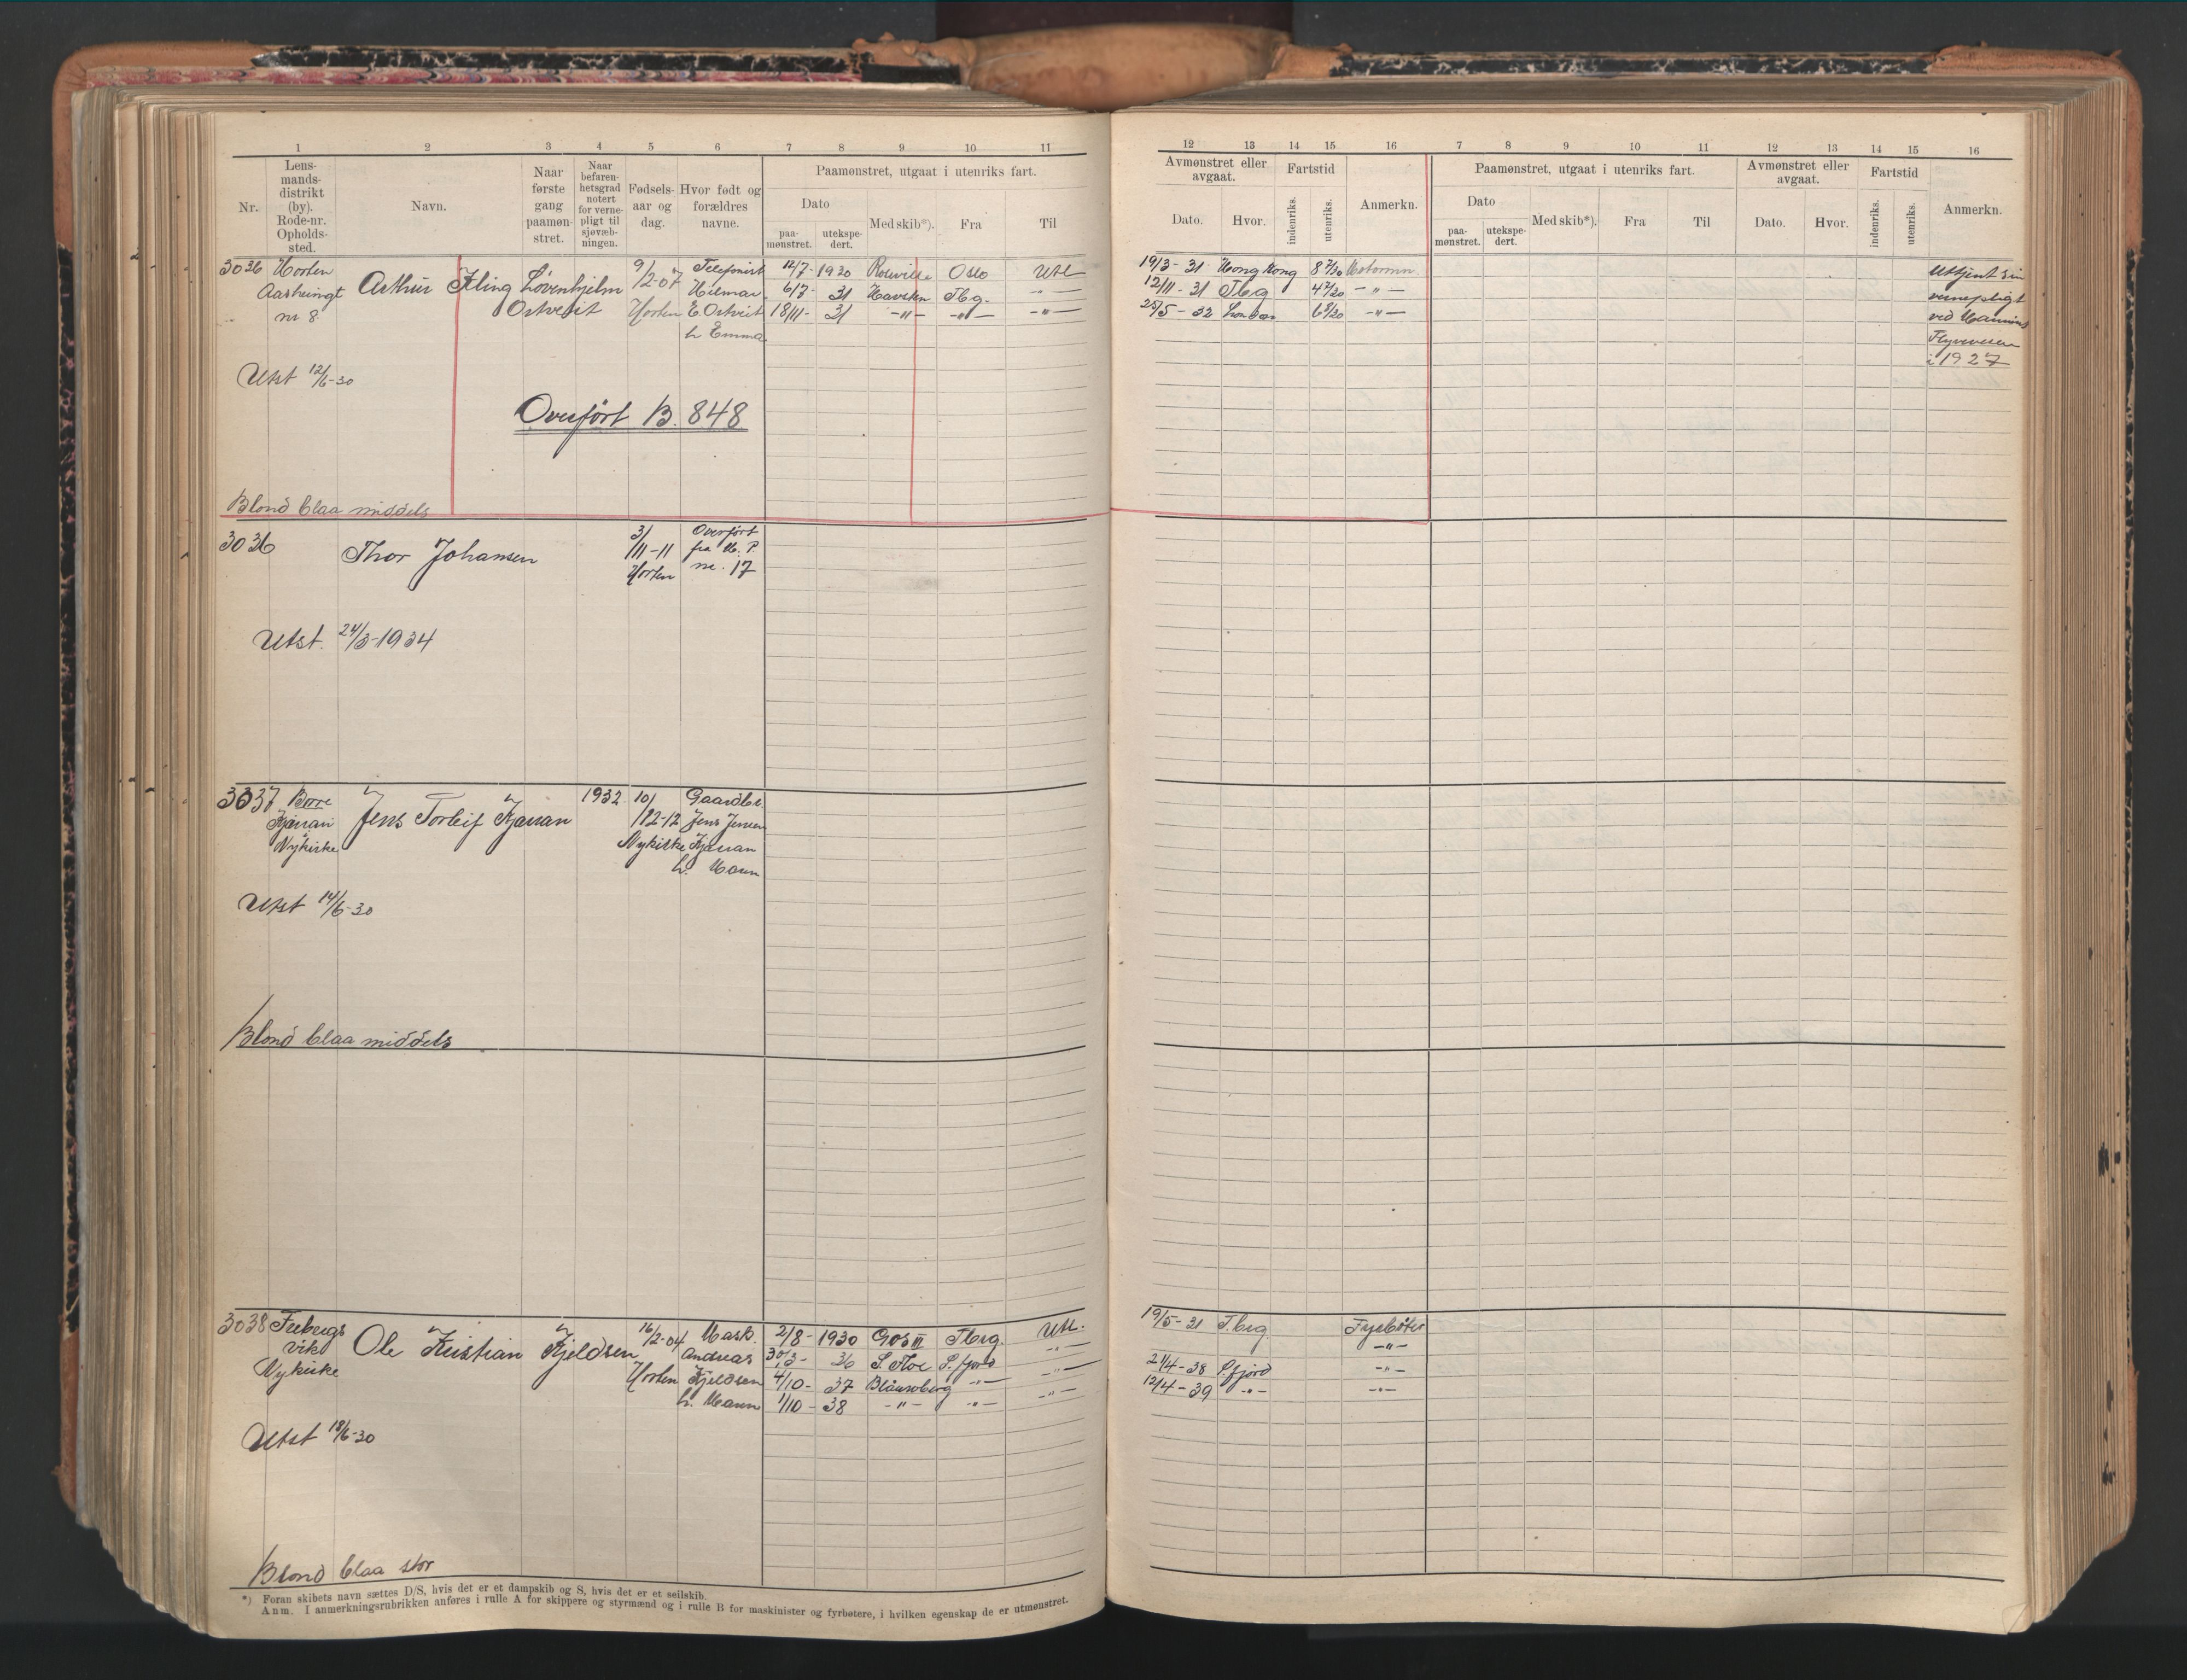 1 2 3 4 5 6 7 8 9 10 11
Nr.
Lens-
mands-
distrikt
(by).
Rode-nr.
Opholds-
sted.
Navn.
Naar
første
gang
paamøn-
stret.
Naar
befaren-
hetsgrad
notert
for verne-
pligt til
sjøvæb-
ningen.
Fødsels-
aar og
dag.
Hvor født og
forældres
navne.
Paamønstret, utgaat i utenriks fart.
Dato
paa-
mønstret.
utekspe-
dert.
Med skib*).
Fra
Til
3036 Horten
Aasheimgt
nr 8.
Arthur Kling Løvenhjelm
Ostveit
9/2-07
Horten
Telefonist
Hilmar
E. Ostveit
h Emma
12/7- 1930 Roseville Oslo Utl
6/7- 31 Havsten Tbg. -"-
18/11- 31 -"- -"- -"-
Utst 12/6-30
Overført B. 848
Blond blaa middels
3036 Thor Johansen
3/11-11
Horten
Overført
fra M. P.
nr. 17
Utst. 24/3-1934
3037 Borre
Kjæran
Nykirke
Jens Torleif Kjæran
1932
10/12-12
Nykirke
Gaardbr.
Jens Jensen
Kjæran
h. Maren
Utst 14/6-30
Blond blaa middels
3038 Frebergs
vik
Nykirke
Ole Kristian Kjeldsen
16/2-04
Horten
Mask.
Andreas
Kjeldsen
h. Maren
2/8- 1930 Gos III Tbrg. Utl.
36 S. fjord -"-
4/10- 37 -"- -"-
1/10- 38 -"- -"- -"-
Utst 18/6-30
Blond blaa stor
*) Foran skibets navn sættes D/S, hvis det er et dampskib og S, hvis det er et seilskib.
Anm. I anmerkningsrubrikken anføres i rulle A for skippere og styrmænd og i rulle B for maskinister og fyrbøtere, i hvilken egenskap de er utmønstret.
12 13 14 15 16 7 8 9 10 11 12 13 14 15 16
Avmønstret eller
avgaat.
Dato.
Hvor.
Fartstid
indenriks.
utenriks.
Anmerkn.
Paamønstret, utgaat i utenriks fart.
Dato
paa-
mønstret.
utekspe-
dert.
Med skib*).
Fra
Til
Avmønstret eller
avgaat.
Dato.
Hvor.
Fartstid
indenriks.
utenriks.
Anmerkn.
19/3- 31 Hong Kong 8 7/30 Motormn
12/11- 31 Tbg -"-
25/5- 32 London -"-
Uttjent sin
vernepligt
ved Marinens
Flyvevesen
i 1927
19/5-31 T.brg. Fyrbøter
-"-
21/4-38 S.fjord -"-
12/4-39 -"- -"-